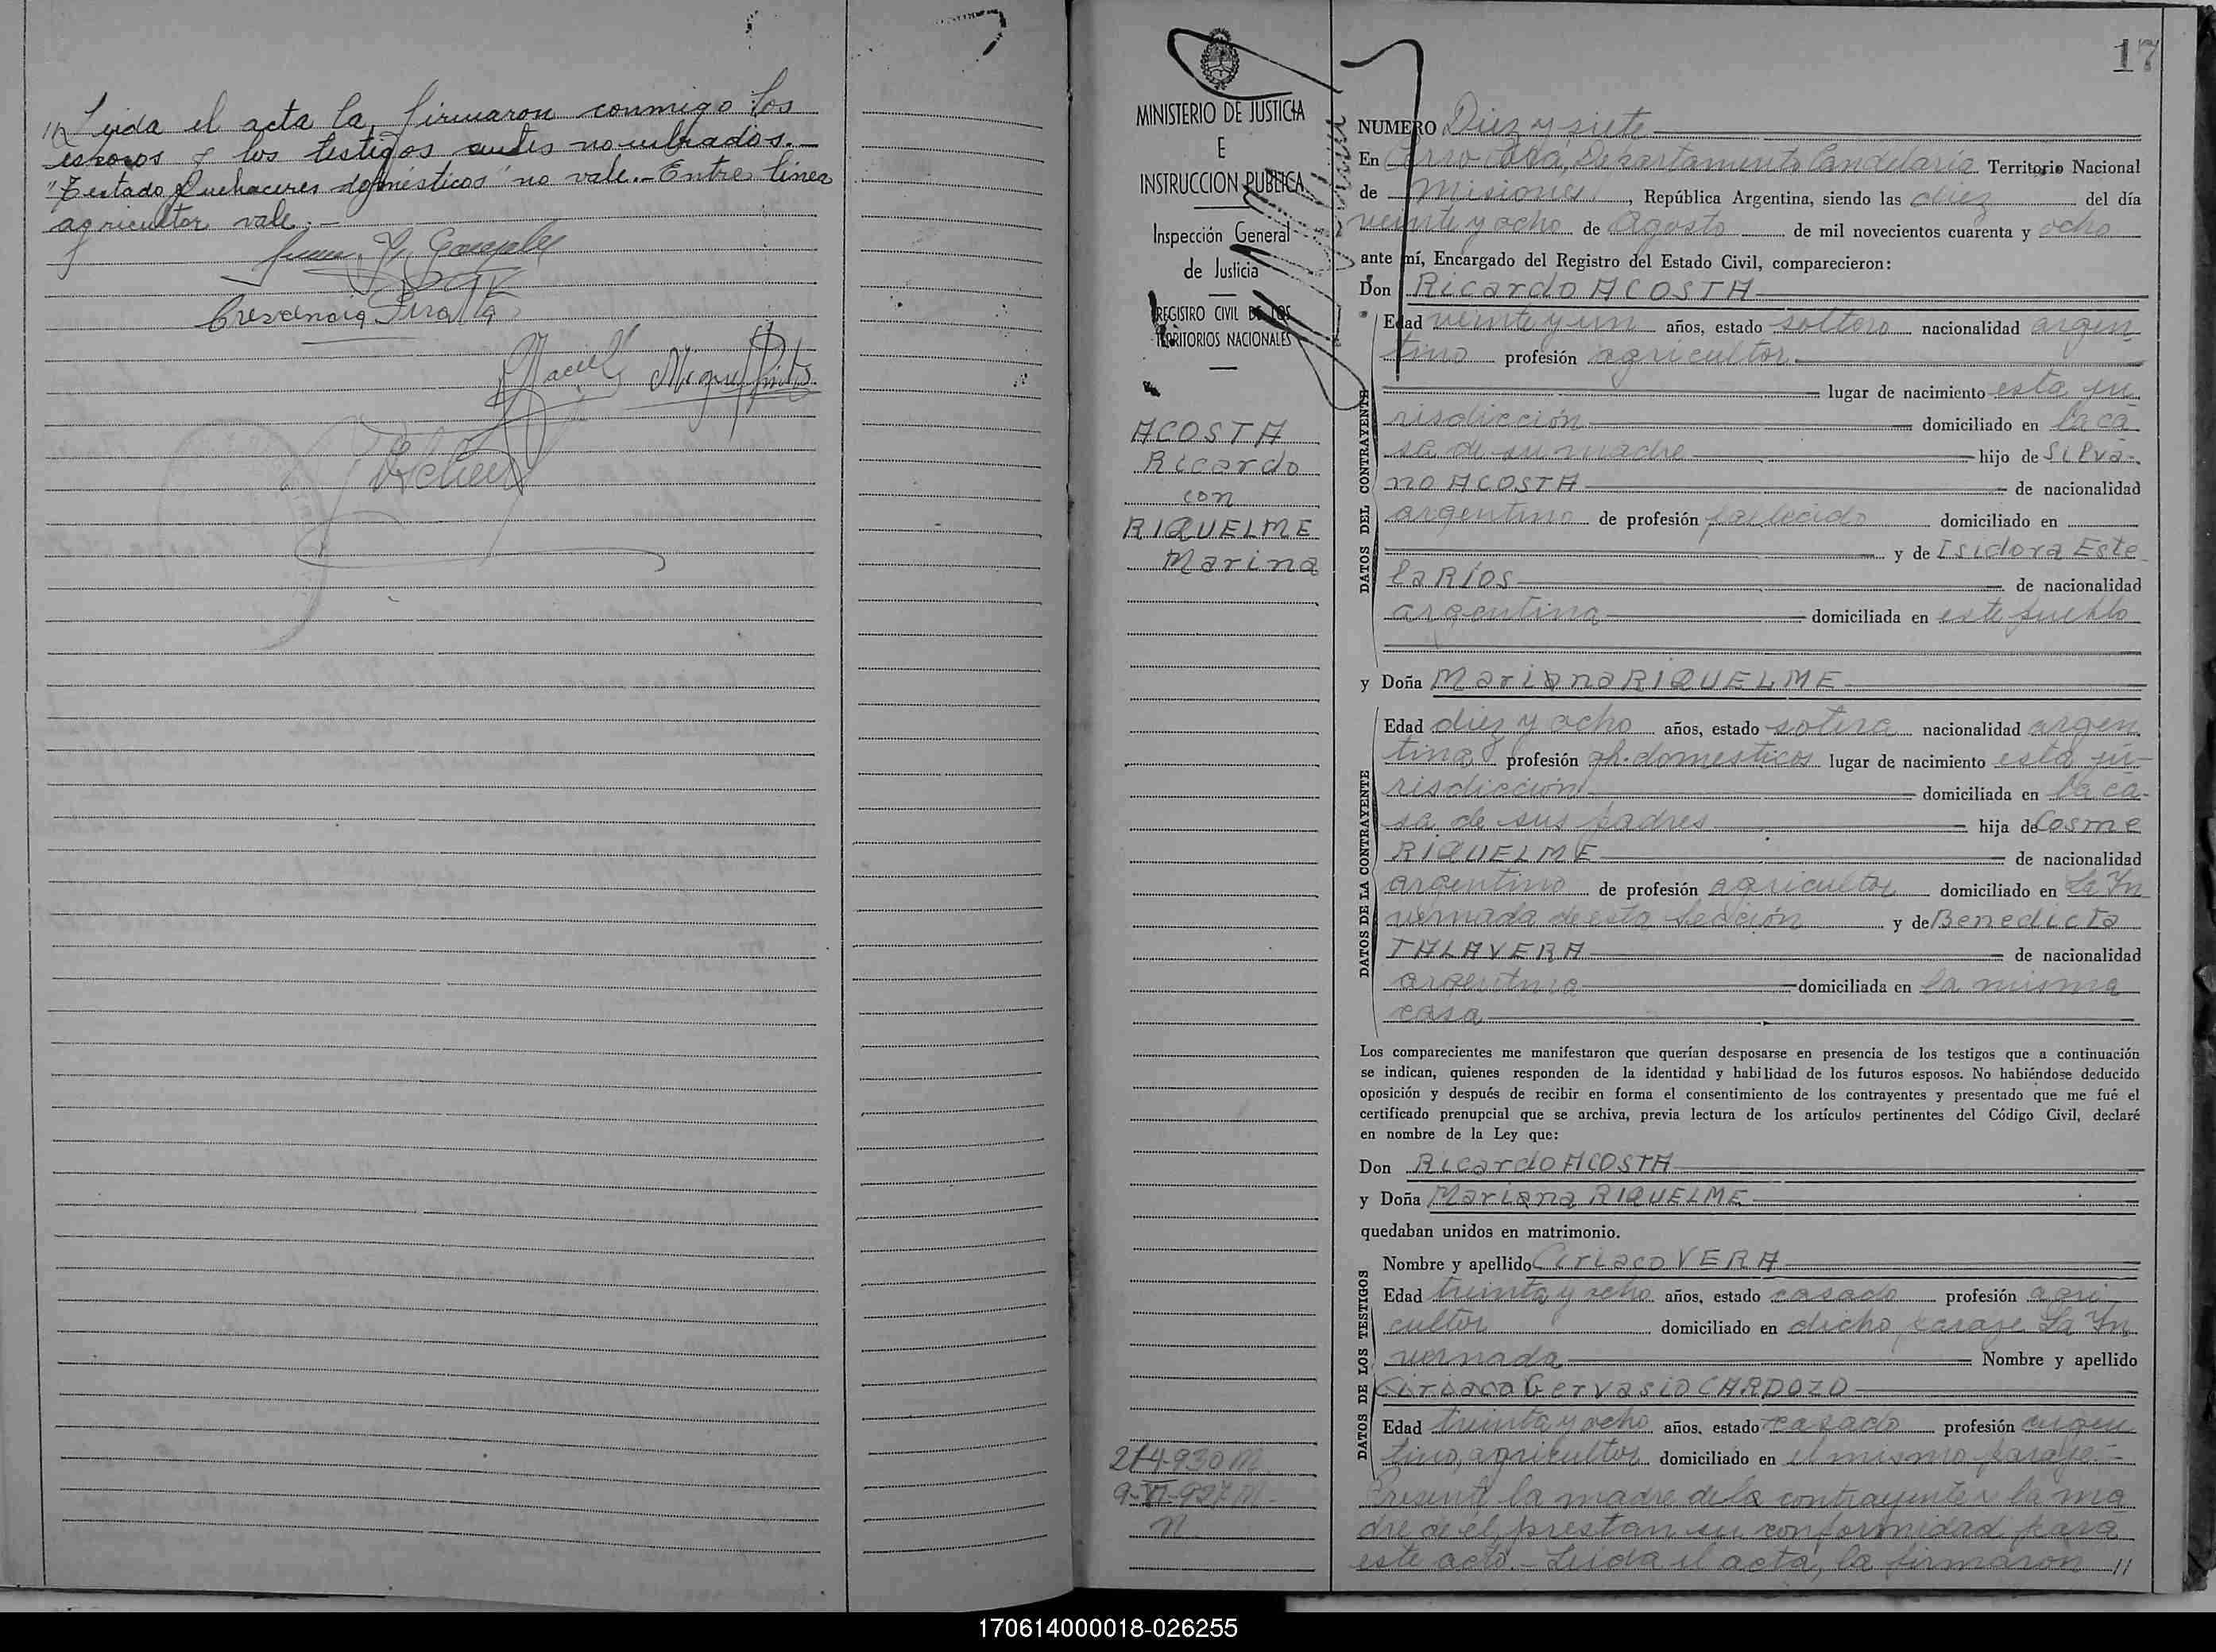 // Leida el acta la firmaron conmigo los
esposos y los testigos antes nombrados.-
"Testado Quehaceres domésticos" no vale.- Entre línea
agricultor vale.-
Crescencia Peralta
Maciel Miguel
17
MINISTERIO DE JUSTICIA
E
INSTRUCCION PUBLICA
Inspección General
de Justicia
REGISTRO CIVIL DE LOS
TERRITORIOS NACIONALES
ACOSTA
Ricardo
con
RIQUELME
Marina
9-VI-927 M-
n
NUMERO Diez y siete
En Cerro Corá, Departamento Candelaria Territorio Nacional
de Misiones, República Argentina, siendo las diez del día
veinte y ocho de Agosto de mil novecientos cuarenta y ocho
ante mí, Encargado del Registro del Estado Civil, comparecieron:
Don Ricardo ACOSTA
DATOS DEL CONTRAYENTE
Edad veinte y un años, estado soltero nacionalidad argen-
tino profesión agricultor
lugar de nacimiento esta ju
risdicción domiciliado en la ca
sa de su madre hijo de Silva-
no ACOSTA de nacionalidad
argentino de profesión fallecido domiciliado en
y de Isidora Este
la RÍOS de nacionalidad
argentina domiciliada en este pueblo
y Doña Mariana RIQUELME
DATOS DE LA CONTRAYENTE
Edad diez y ocho años, estado soltera nacionalidad argen
tina profesión qh. domesticos lugar de nacimiento esta ju-
risdicción domiciliada en la ca-
sa de sus padres hija de Cosme
RIQUELME de nacionalidad
argentino de profesión agricultor domiciliado en La In
vernada de esta Sección y de Benedicta
TALAVERA de nacionalidad
argentina domiciliada en la misma
casa
Los comparecientes me manifestaron que querían desposarse en presencia de los testigos que a continuación
se indican, quienes responden de la identidad y habilidad de los futuros esposos. No habiéndose deducido
oposición y después de recibir en forma el consentimiento de los contrayentes y presentado que me fué el
certificado prenupcial que se archiva, previa lectura de los artículos pertinentes del Código Civil, declaré
en nombre de la Ley que:
Don Ricardo ACOSTA
y Doña Mariana RIQUELME
quedaban unidos en matrimonio.
DATOS DE LOS TESTIGOS
Nombre y apellido Ciriaco VERA
Edad treinta y ocho años, estado casado profesión agri
cultor domiciliado en dicho paraje La In
vernada Nombre y apellido
Ciriaco Gervasio CARDOZO
Edad treinta y ocho años, estado casado profesión argen
tino, agricultor domiciliado en el mismo paraje.-
Presente la madre de la contrayente y la ma
dre de el, prestan su conformidad para
este acto.- Leida el acta, la firmaron //
170614000018-026255